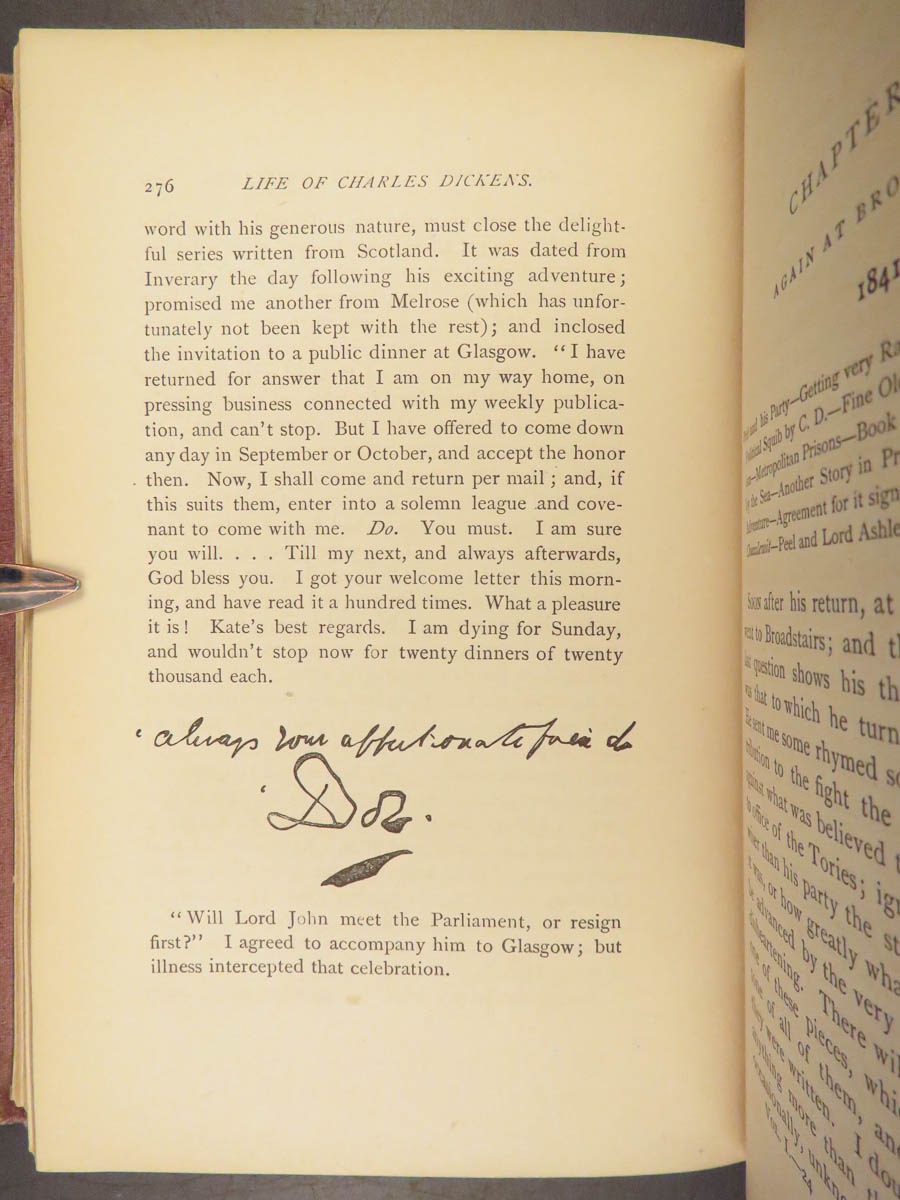 276 LIFE OF CHARLES DICKENS.
word with his generous nature, must close the delight-
ful series written from Scotland. It was dated from
Inverary the day following his exciting adventure;
promised me another from Melrose (which has unfor-
tunately not been kept with the rest); and inclosed
the invitation to a public dinner at Glasgow. "I have
returned for answer that I am on my way home, on
pressing business connected with my weekly publica-
tion, and can't stop. But I have offered to come down
any day in September or October, and accept the honor
then. Now, I shall come and return per mail; and, if
this suits them, enter into a solemn league and cove-
nant to come with me. Do. You must. I am sure
you will. . . . Till my next, and always afterwards,
God bless you. I got your welcome letter this morn-
ing, and have read it a hundred times. What a pleasure
it is! Kate's best regards. I am dying for Sunday,
and wouldn't stop now for twenty dinners of twenty
thousand each.
'always your affectionate friend
'Boz.
"Will Lord John meet the Parliament, or resign
first?" I agreed to accompany him to Glasgow; but
illness intercepted that celebration.
CHAPTER
AGAIN AT BRO
1841
and his Party—Getting very Ra
Political Squib by C. D.—Fine Ol
Metropolitan Prisons—Book
by the Sea—Another Story in Pr
Adventure—Agreement for it sign
Peel and Lord Ashle
SOON after his return, at
went to Broadstairs; and th
last question shows his th
was that to which he turn
He sent me some rhymed s
tribution to the fight the
against what was believed t
to office of the Tories; ig
than his party the st
it was, or how greatly wha
be advanced by the very
disheartening. There wil
one of these pieces, whi
some of all of them, an
they were written. I dou
anything more than
occasionally, unkn
VOL. I.—24